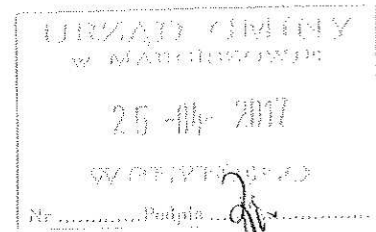 URZĄD GMINY
w
25 2017
WPŁYNĘŁO
Nr ............. Podpis .............